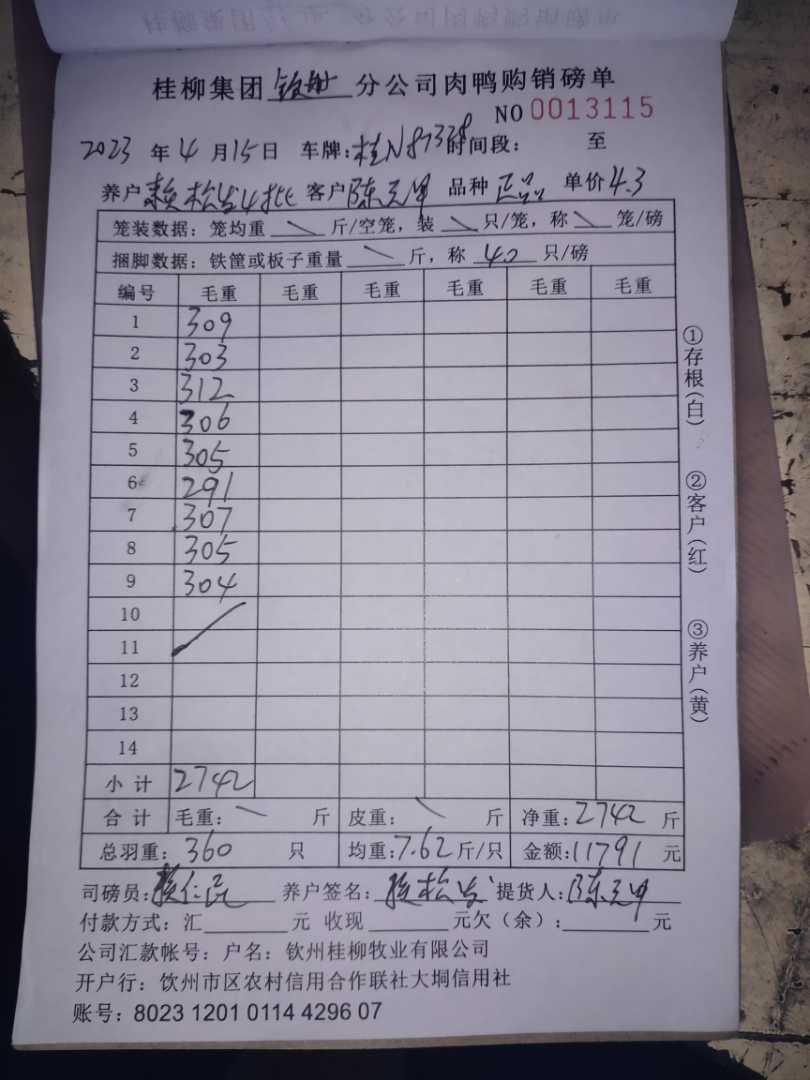 桂柳集团钦州分公司肉鸭购销磅单
NO 0013115
2023年4月15日 车牌:桂N87338 时间段: 至
养户 赖松发4批 客户 陈 品种 正品 单价 4.3
笼装数据:笼均重 斤/空笼,装 只/笼,称 笼/磅
捆脚数据:铁筐或板子重量 斤,称 40 只/磅
编号 毛重 毛重 毛重 毛重 毛重 毛重
1 309
2 303
3 312
4 306
5 305
6 291
7 307
8 305
9 304
10
11
12
13
14
小计 2742
合计 毛重: 斤 皮重: 斤 净重:2742 斤
总羽重:360 只 均重:7.62 斤/只 金额:11791 元
司磅员: 养户签名:赖松发 提货人:陈
付款方式:汇 元 收现 元欠(余): 元
公司汇款帐号:户名:钦州桂柳牧业有限公司
开户行:饮州市区农村信用合作联社大垌信用社
账号:8023 1201 0114 4296 07
①存根(白)
②客户(红)
③养户(黄)